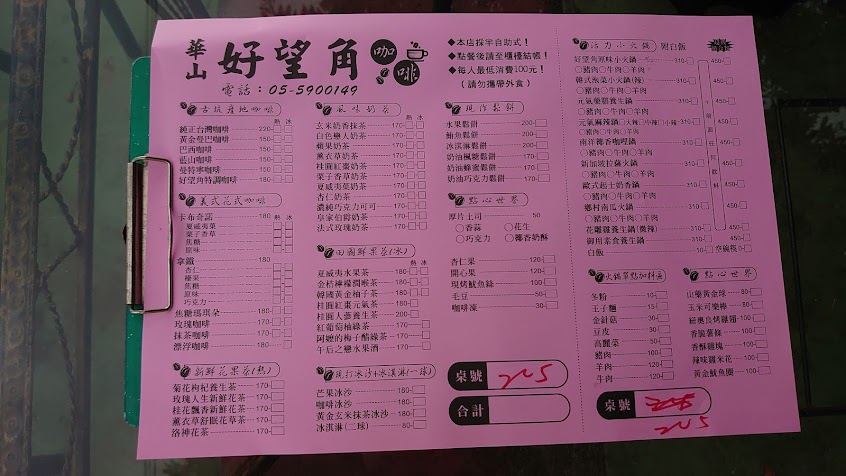 華山
好望角 咖啡
電話：05-5900149
◆本店採半自助式！
◆點餐後請至櫃檯結帳！
◆每人最低消費100元！
（請勿攜帶外食）
古坑產地咖啡
熱 冰
純正台灣咖啡 220
黃金曼巴咖啡 150
巴西咖啡 150
藍山咖啡 150
曼特寧咖啡 150
好望角特調咖啡 180
義式花式咖啡
卡布奇諾 180 熱 冰
夏威夷果
栗子香草
焦糖
原味
拿鐵 180
杏仁
榛果
焦糖
原味
巧克力
焦糖瑪琪朵 180
玫瑰咖啡 170
抹茶咖啡 170
漂浮咖啡 180
新鮮花果茶(熱)
菊花枸杞養生茶 170
玫瑰人生新鮮花茶 170
桂花飄香新鮮花茶 170
薰衣草舒眠花草茶 170
洛神花茶 170
風味奶茶
熱 冰
玄米奶香抹茶 170
白色戀人奶茶 170
蘋果奶茶 170
薰衣草奶茶 170
桂圓紅棗奶茶 170
栗子香草奶茶 170
夏威夷果奶茶 170
杏仁奶茶 170
濃純巧克力可可 170
皇家伯爵奶茶 170
法式玫瑰奶茶 170
田園鮮果茶(冰)
夏威夷水果茶 180
金桔檸檬潤喉茶 180
韓國黃金柚子茶 180
桂圓紅棗元氣茶 180
桂圓人蔘養生茶 200
紅葡萄柚綠茶 170
阿嬤的梅子醋綠茶 170
午后之戀水果酒 170
現打冰沙+冰淇淋(一球)
芒果冰沙 180
咖啡冰沙 180
黃金玄米抹茶冰沙 180
冰淇淋(二球) 80
現作鬆餅
水果鬆餅 200
鮪魚鬆餅 200
冰淇淋鬆餅 200
奶油楓糖鬆餅 170
奶油蜂蜜鬆餅 170
奶油巧克力鬆餅 170
點心世界
厚片土司 50
○香蒜 ○花生
○巧克力 ○椰香奶酥
杏仁果 120
開心果 120
現烤魷魚絲 100
毛豆 50
咖啡凍 30
桌號 205
合計
活力小火鍋 附白飯
好望角原味小火鍋 310 450
○豬肉○牛肉○羊肉
韓式泡菜小火鍋(辣) 310 450
○豬肉○牛肉○羊肉
元氣藥膳養生鍋 310 450
○豬肉○牛肉○羊肉
元氣麻辣鍋○大辣○中辣○小辣 310 450
○豬肉○牛肉○羊肉
南洋椰香咖哩鍋 310 450
○豬肉○牛肉○羊肉
新加坡拉薩火鍋 310 450
○豬肉○牛肉○羊肉
歐式起士奶香鍋 310 450
○豬肉○牛肉○羊肉
鄉村南瓜火鍋 310 450
○豬肉○牛肉○羊肉
花雕雞養生鍋(微辣) 310 450
御用素食養生鍋 310 450
白飯 10 空碗筷 0
火鍋單點加料區
冬粉 10
王子麵 15
金針菇 30
豆皮 30
高麗菜 50
豬肉 100
羊肉 120
牛肉 120
點心世界
山藥黃金球 80
玉米可樂棒 80
紐奧良烤雞翅 100
香脆薯條 100
香酥雞塊 100
辣味雞米花 100
黃金魷魚圈 100
桌號
205